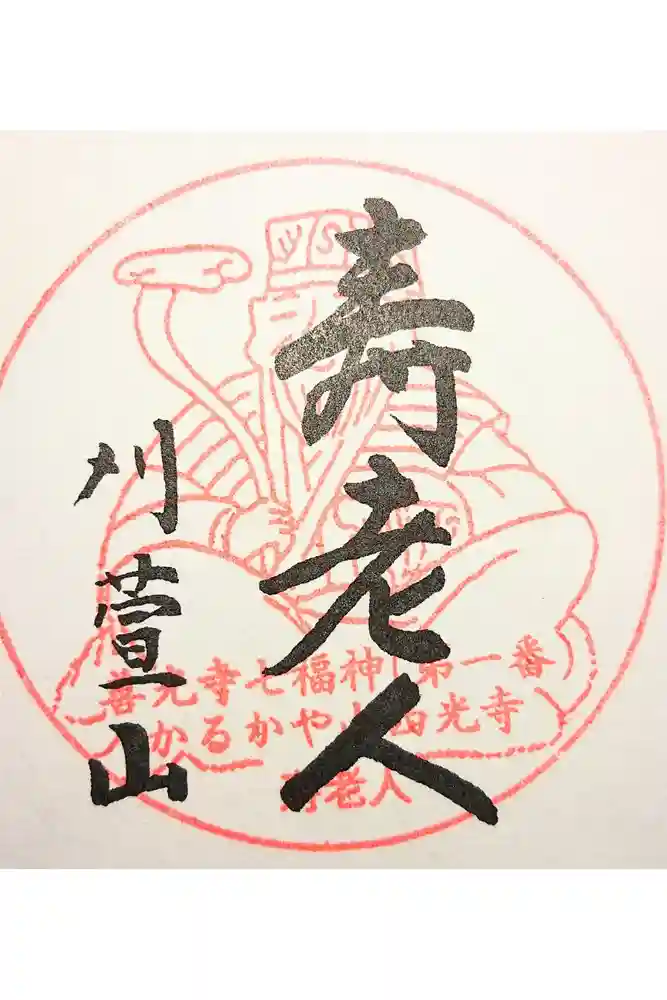 寿老人
刈萱山
善光寺七福神 第一番
かるかや山西光寺
寿老人